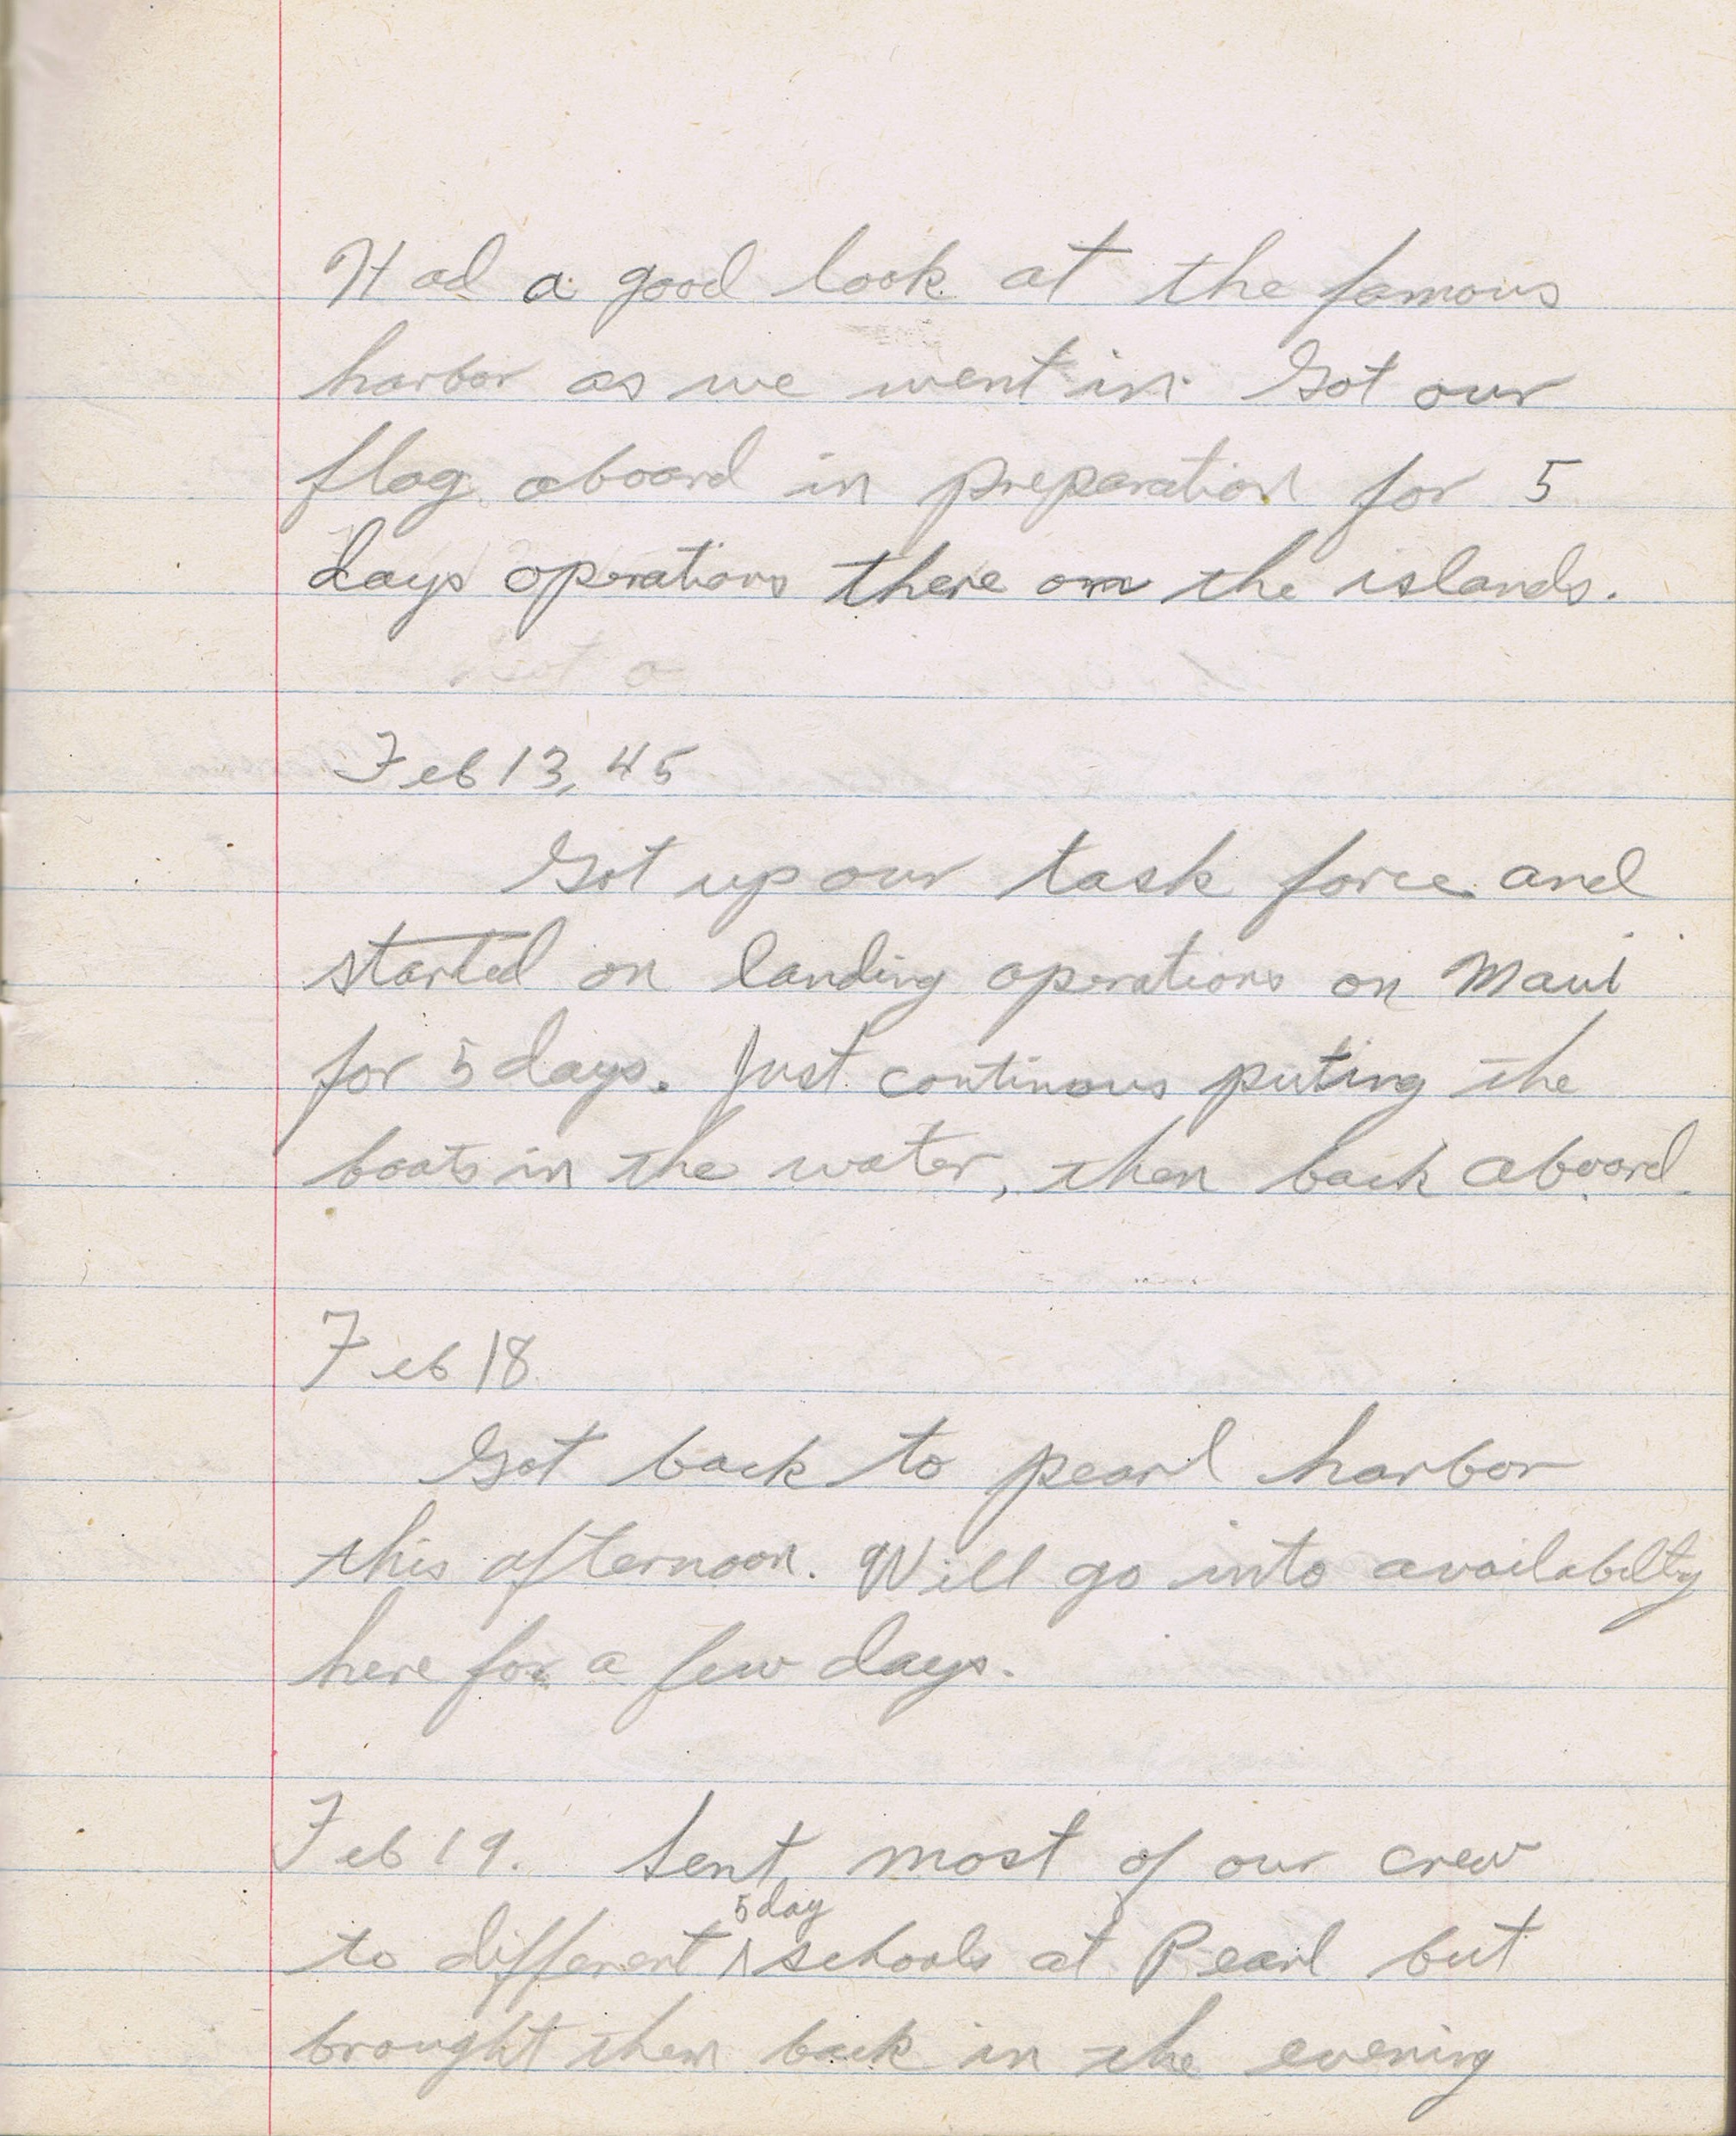 Had a good look at the famous
harbor as we went in. Got our
flag aboard in preparation for 5
days operations there on the islands.
Feb 13, 45
Got up our task force and
started on landing operations on Maui
for 5 days. Just continous puting the
boats in the water, then back aboard.
Feb 18
Got back to pearl harbor
this afternoon. Will go into availabilty
here for a few days.
Feb 19. Sent most of our crew
5 day
to different ^ schools at Pearl but
brought them back in the evening